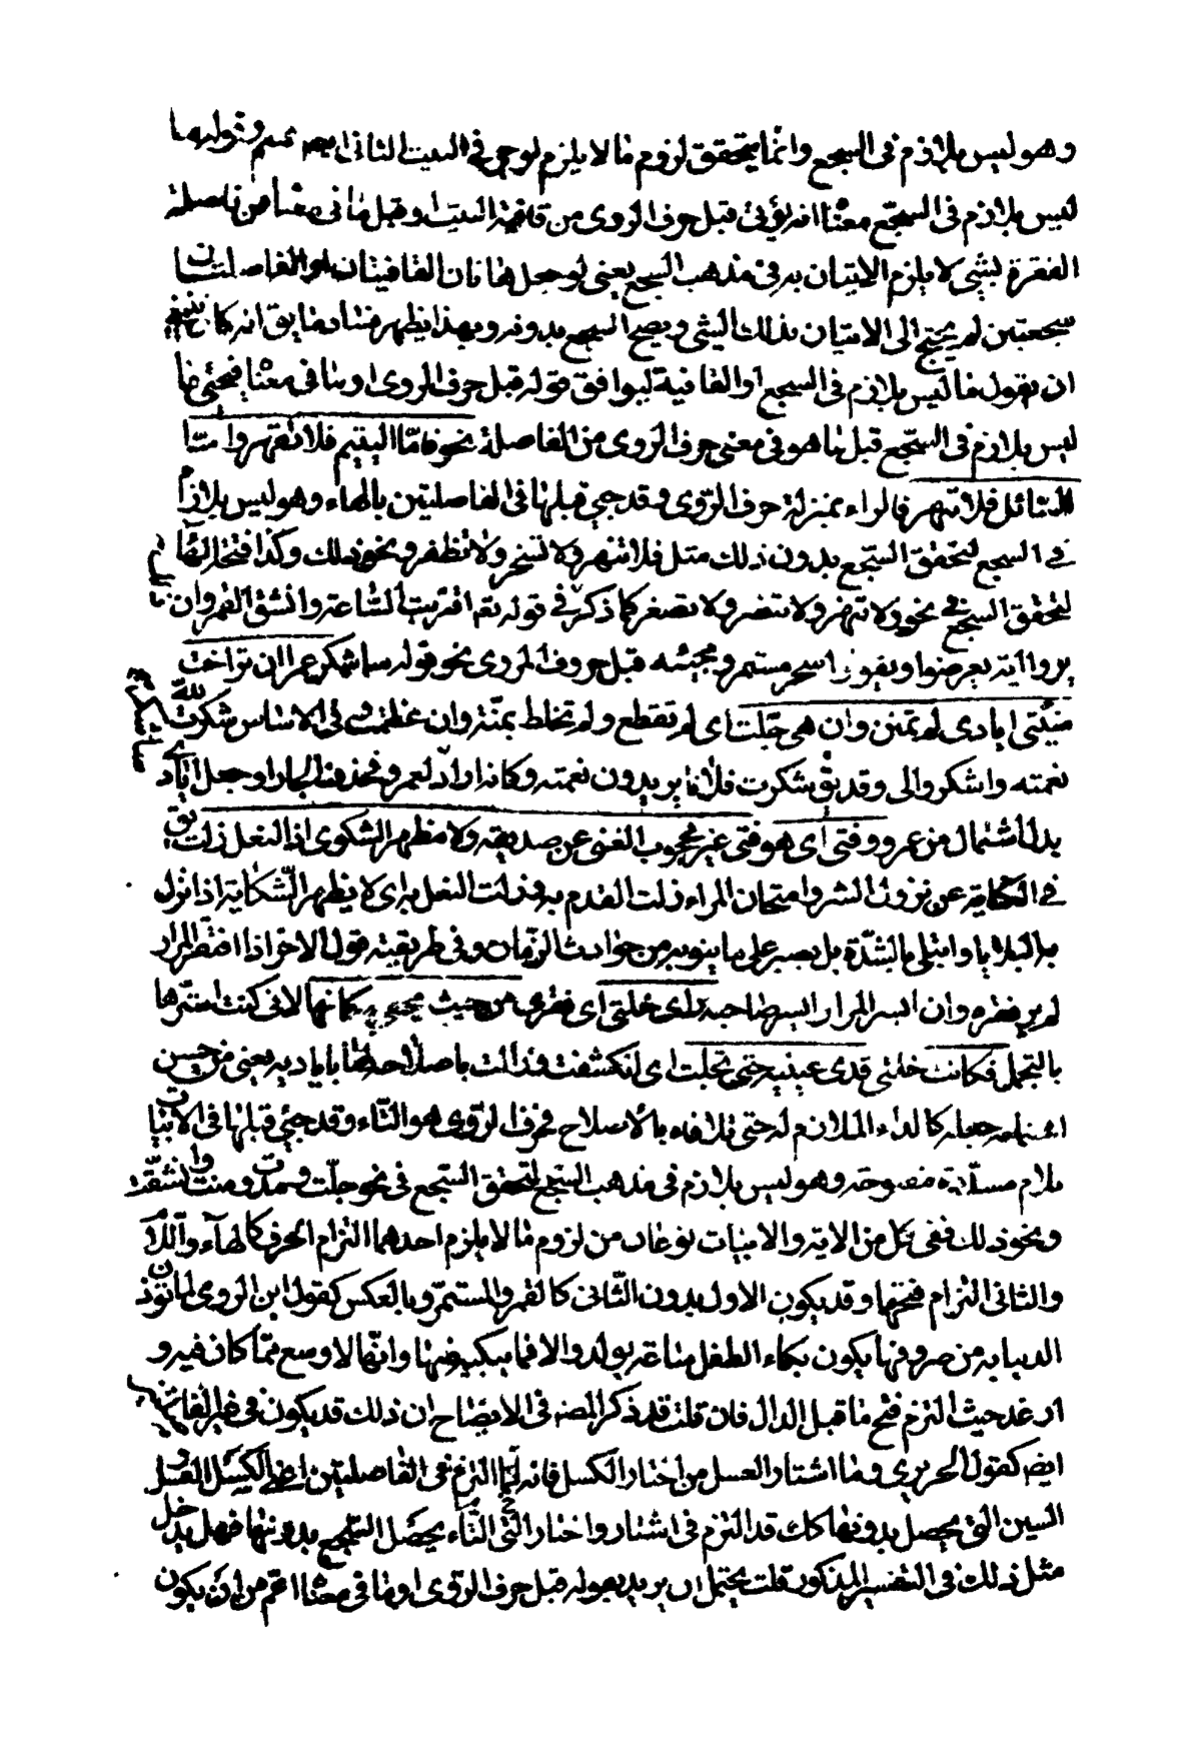 وهو ليس بلازم فى السجع وانما يتحقق لزوم ما لا يلزم لو جئ فى البيت الثانى وقوله ما
ليس بلازم فى السجع معناه انه يؤتى قبل حرف الروى من قافية البيت او قبل ما فى معناه من فاصلة
الفقرة بشئ لا يلزم الاتيان به فى مذهب السجع يعنى لو جعل هاتان القافيتان او الفاصلتان
سجعتين لم يحتج الى الاتيان بذلك الشئ ويصح السجع بدونه وبهذا يظهر فساد ما يق انه كان ينبغى
ان يقول ما ليس بلازم فى السجع او القافية ليوافق قوله قبل حرف الروى او ما فى معناه فمجئ ما
ليس بلازم فى السجع قبل ما هو فى معنى حرف الروى من الفاصلة نحو فاما اليتيم فلا تقهر واما
السائل فلا تنهر فالراء بمنزلة حرف الروى وقد جئ قبلها فى الفاصلتين بالهاء وهو ليس بلازم
فى السجع لتحقق السجع بدون ذلك مثل فلا تنهر ولا تسخر ولا تظفر ونحو ذلك وكذا فتحة الهاء
لتحقق السجع فى نحو ولا تنهر ولا تنصر ولا تصغر كما ذكر فى قوله تع اقتربت الساعة وانشق القمر وان
يروا اية يعرضوا ويقولوا سحر مستمر ومجيئه قبل حرف الروى نحو قوله ساشكر عمرا ان تراخت
منيتى ايادى لم تمنن وان هى جلت اى لم تقطع ولم تخلط بمنة وان عظمت وفى الاساس شكرت لله
نعمته واشكروا لى وقد يق شكرت فلانا يريدون نعمته وكانه اراد لعمرو فحذف الجار او جعل ايادى
بدل اشتمال من عمرو وفتى اى هو فتى غير محجوب الغنى عن صديقه ولا مظهر الشكوى اذ النعل زلت يق
فى الكناية عن نزول الشر وامتحان المرء زلت القدم به وزلت النعل به اى لا يظهر الشكاية اذا نزل
به البلايا وابتلى بالشدة بل يصبر على ما ينوبه من حوادث الزمان وفى طريقته قول الاخر اذا افتقر المرار
لم ير فقره وان ايسر المرار ايسر صاحبه راى خلتى اى فقرى من حيث يخفى مكانها لانى كنت استرها
بالتجمل فكانت خلتى قذى عينيه حتى تجلت اى انكشفت وزالت باصلاحه لها باياديه يعنى من حسن
اهتمامه جعله كالداء الملازم له حتى تلافاه بالاصلاح فحرف الروى هو التاء وقد جئ قبلها فى الابيات
بلام مشددة مفتوحة وهو ليس بلازم فى مذهب السجع لتحقق السجع فى نحو جلت ومدت ومنت وانشقت
ونحو ذلك ففى كل من الاية والابيات نوعان من لزوم ما لا يلزم احدهما التزام الحرف كالهاء واللام
والثانى التزام فتحها وقد يكون الاول بدون الثانى كالقمر والمستمر وبالعكس كقول ابن الرومى لما تؤذن
الدنيا به من صروفها يكون بكاء الطفل ساعة يولد والا فما يبكيه منها وانها لاوسع مما كان فيه و
ارغد حيث التزم فتح ما قبل الدال فان قلت قد ذكر المصنف فى الايضاح ان ذلك قد يكون فى غير الفاصلتين
ايضا كقول الحريرى وما اشتار العسل من اختار الكسل فانه كما التزم فى الفاصلتين اعنى الكسل والعسل
السين التى يحصل بدونها كك قد التزم فى اشتار واختار التى التاء يحصل السجع بدونها فهل يدخل
مثل ذلك فى التفسير المذكور قلت يحتمل ان يريد بقوله قبل حرف الروى او ما فى معناه اعم من ان يكون